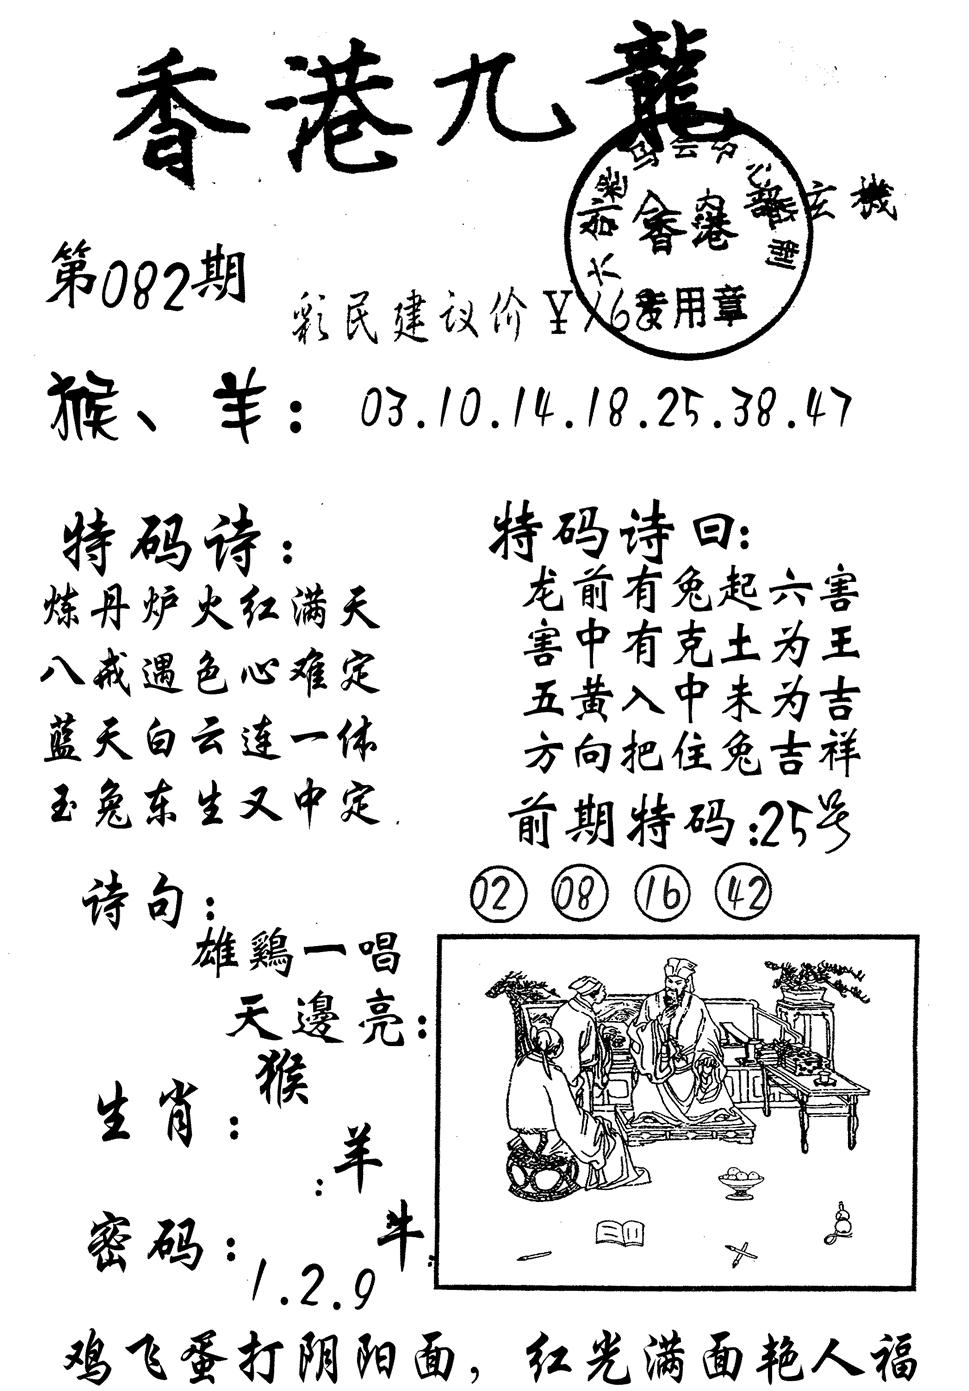 香港九龍
玄機
香港
专用章
第082期
彩民建议价¥168
猴、羊：03.10.14.18.25.38.47
特码诗：
炼丹炉火红满天
八戒遇色心难定
蓝天白云连一体
玉兔东生又中定
特码诗曰：
龙前有兔起六害
害中有克土为王
五黄入中未为吉
方向把住兔吉祥
前期特码：25号
02 08 16 42
诗句：
雄鷄一唱
天邊亮：
生肖：
猴
羊
牛
密码：
1.2.9
鸡飞蛋打阴阳面，红光满面艳人福